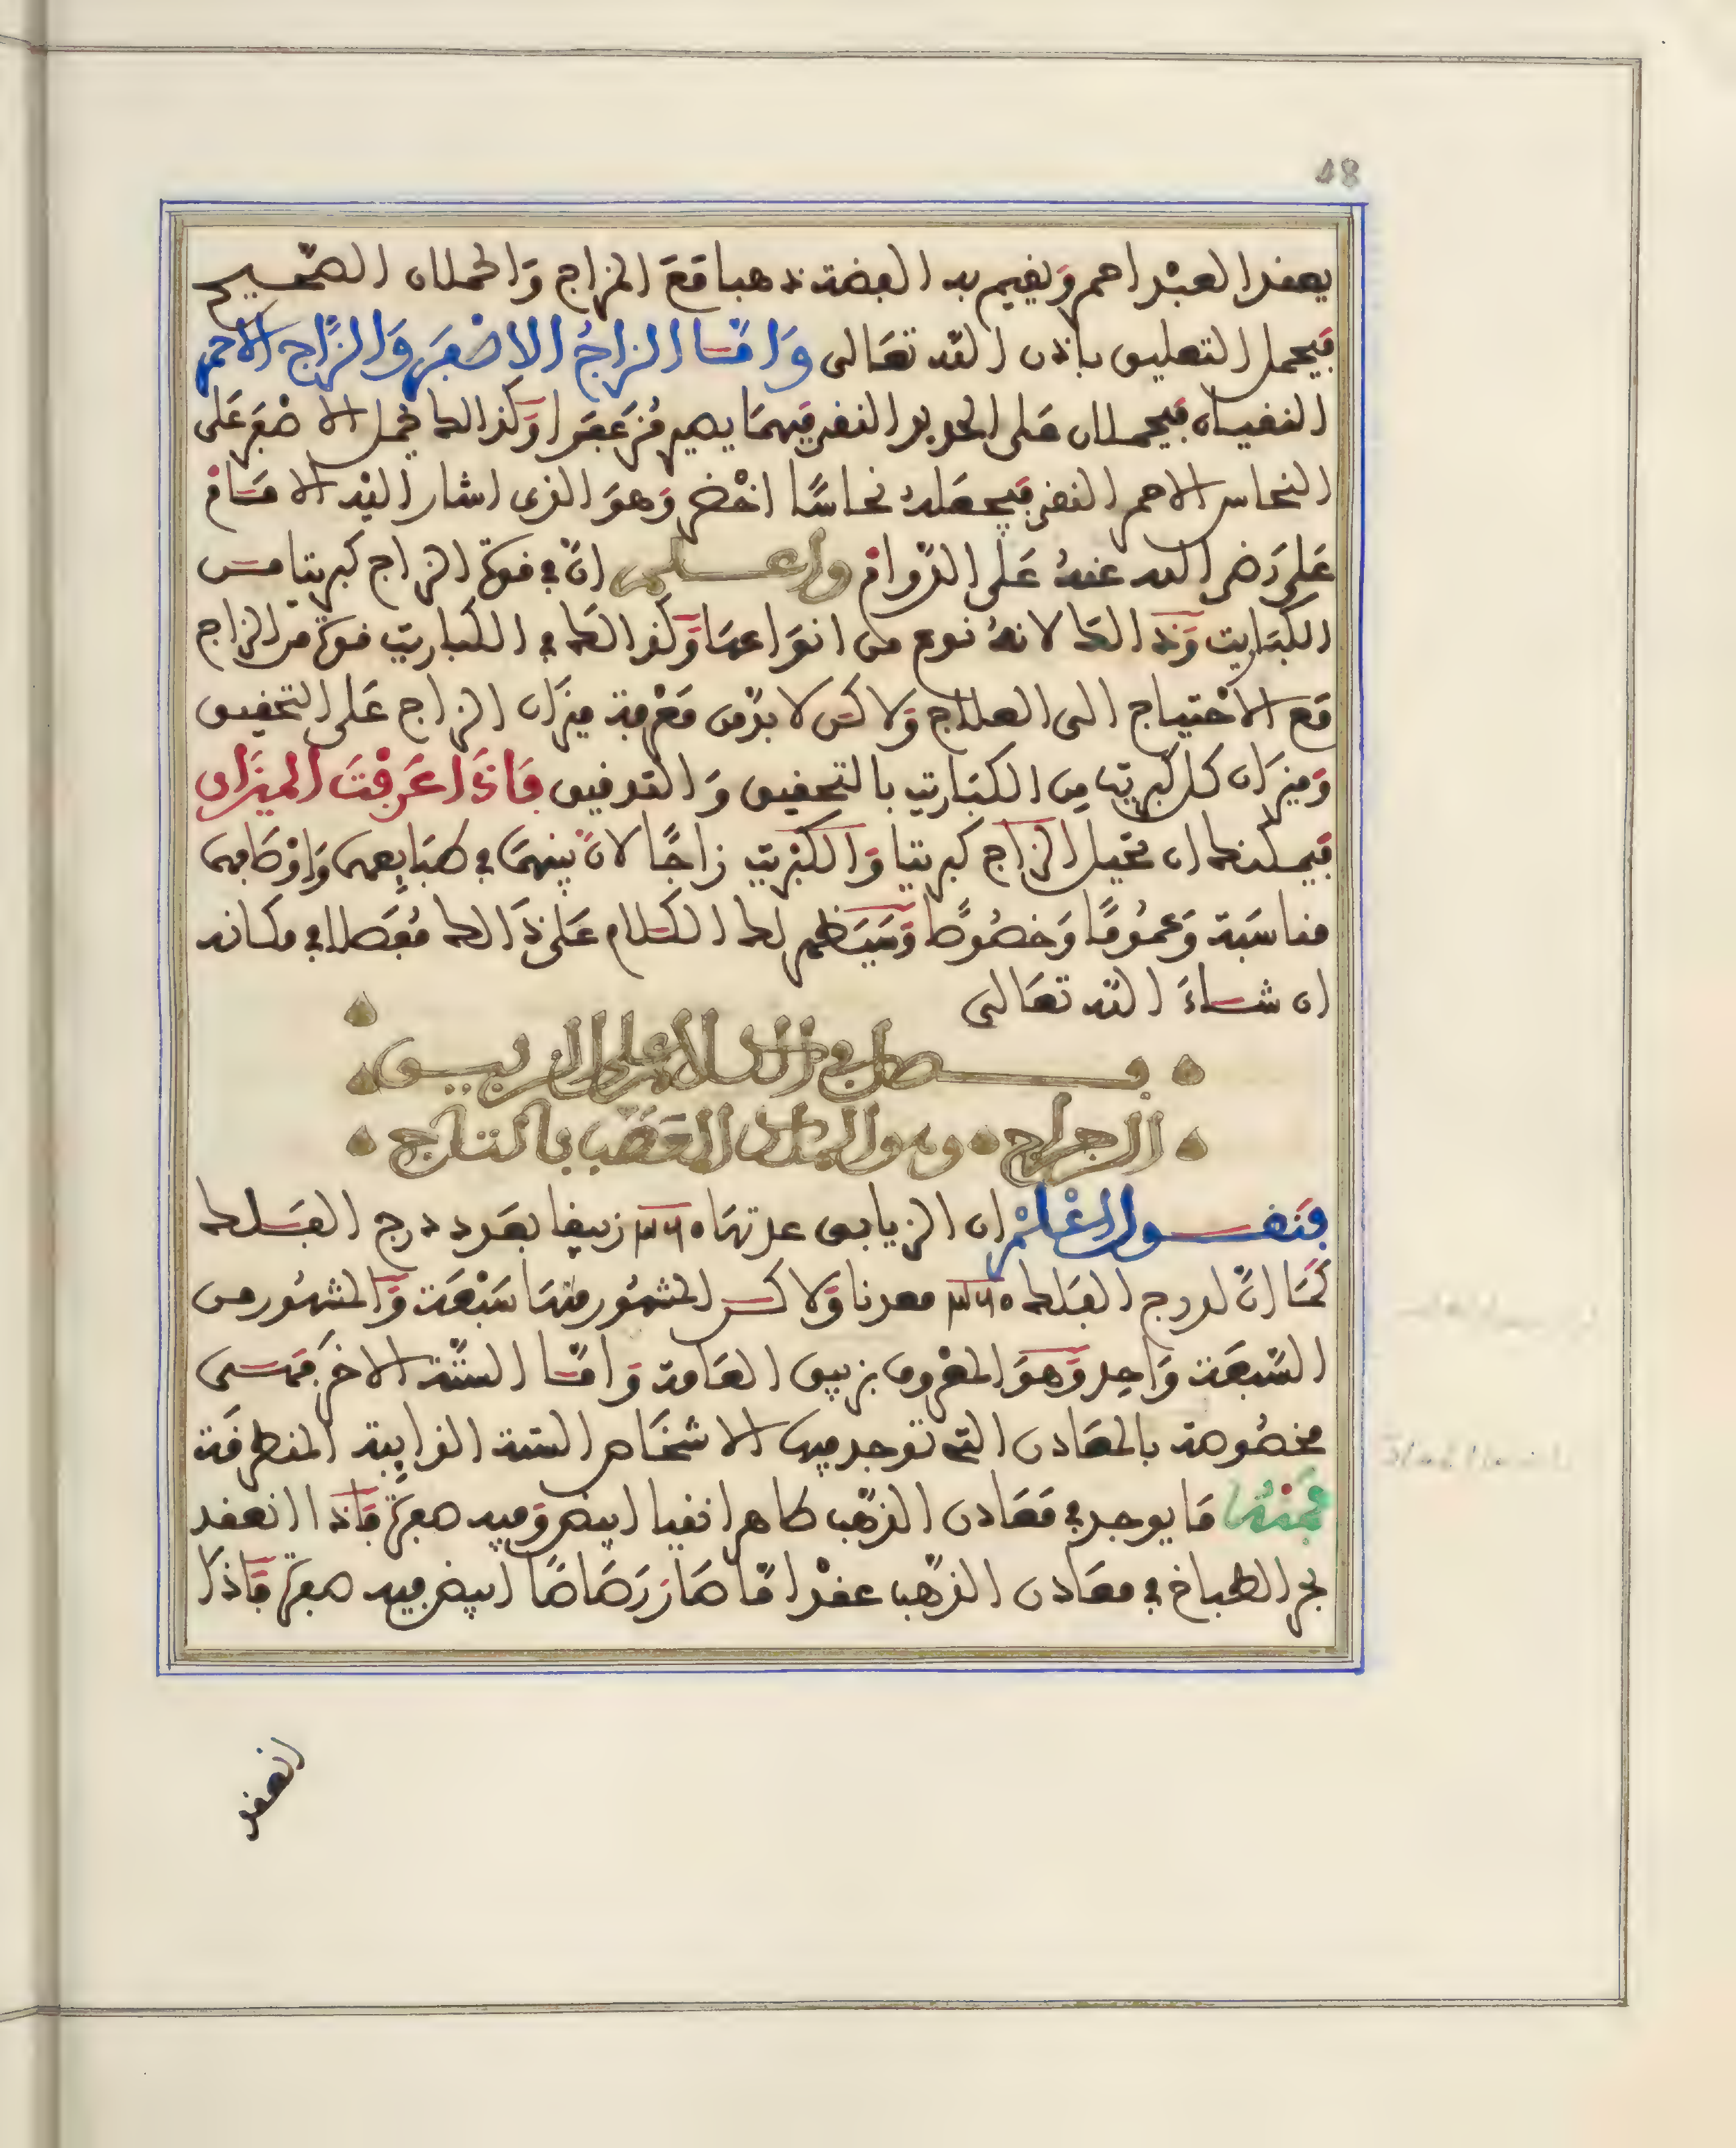 18
يعقد العبد احمر ويقيم به الفضة ذهبا مع المزاج والحملان الصحيح
فيحمل التعليق باذن الله تعالى وامّا الزاجُ الاصْفَر والزّاج الاحمر
النقيان فيحملان على الحديد النقي فيهما يصير مُزَعفرا وكذالك يحمل الاصْفر على
النحاس الاحمر النقي فيجعله نحاسًا اخْضر وهو الذى اشار اليْه الامام
على رضى الله عنهُ على الدّوام واعلم انّ في قوة الزاج كبريتا من
الكباريت وذالك لانهُ نوع من انواعها وكذالك في الكباريت قوة من الزاج
مع الاحْتياج الى العلاج ولاكن لا بدّ من معْرفة ميزان الزاج على التحقيق
وميزان كل كبريت من الكباريت بالتحقيق والتوفيق فاذا عَرفْتَ الميزان
فيمكنك ان تحيل الزاج كبريتا والكبْريت زاجًا لانّ بينهما في طبايعهما واوْصافهما
مناسبة وعمُومًا وخصُوصًا وسيَظهر لك الكلام على ذالك مُفَصلا في مكانه
ان شاءَ الله تعالى
فصل في الكلام على الزيبق
الرجراج وهو الملك المعَصّب بالتاج
فنقول اعْلمْ ان الزيابق عدتها ٣٦٥ زيبقا بعدد درج الفلك
كما انّ لدرج الفلك ٣٦٥ معدنا ولاكن المشهور منها سَبْعَة والمشهور من
السّبعة واحد وهو المعْروف بزيبق العامة وامّا الستّة الاخر فهى
مخصُوصة بالمعادن التى توجد فيها الاشخاص الستة الذايبة المنطرقة
فمنها ما يوجد في معادن الذهب طاهرا نقيا ابيض وفيه صفرة فاذا انعقد
بحر الطباخ في معادن الذهب عقدا مّا صار رصاصًا ابيض فيه صفرة فاذا
انعقد